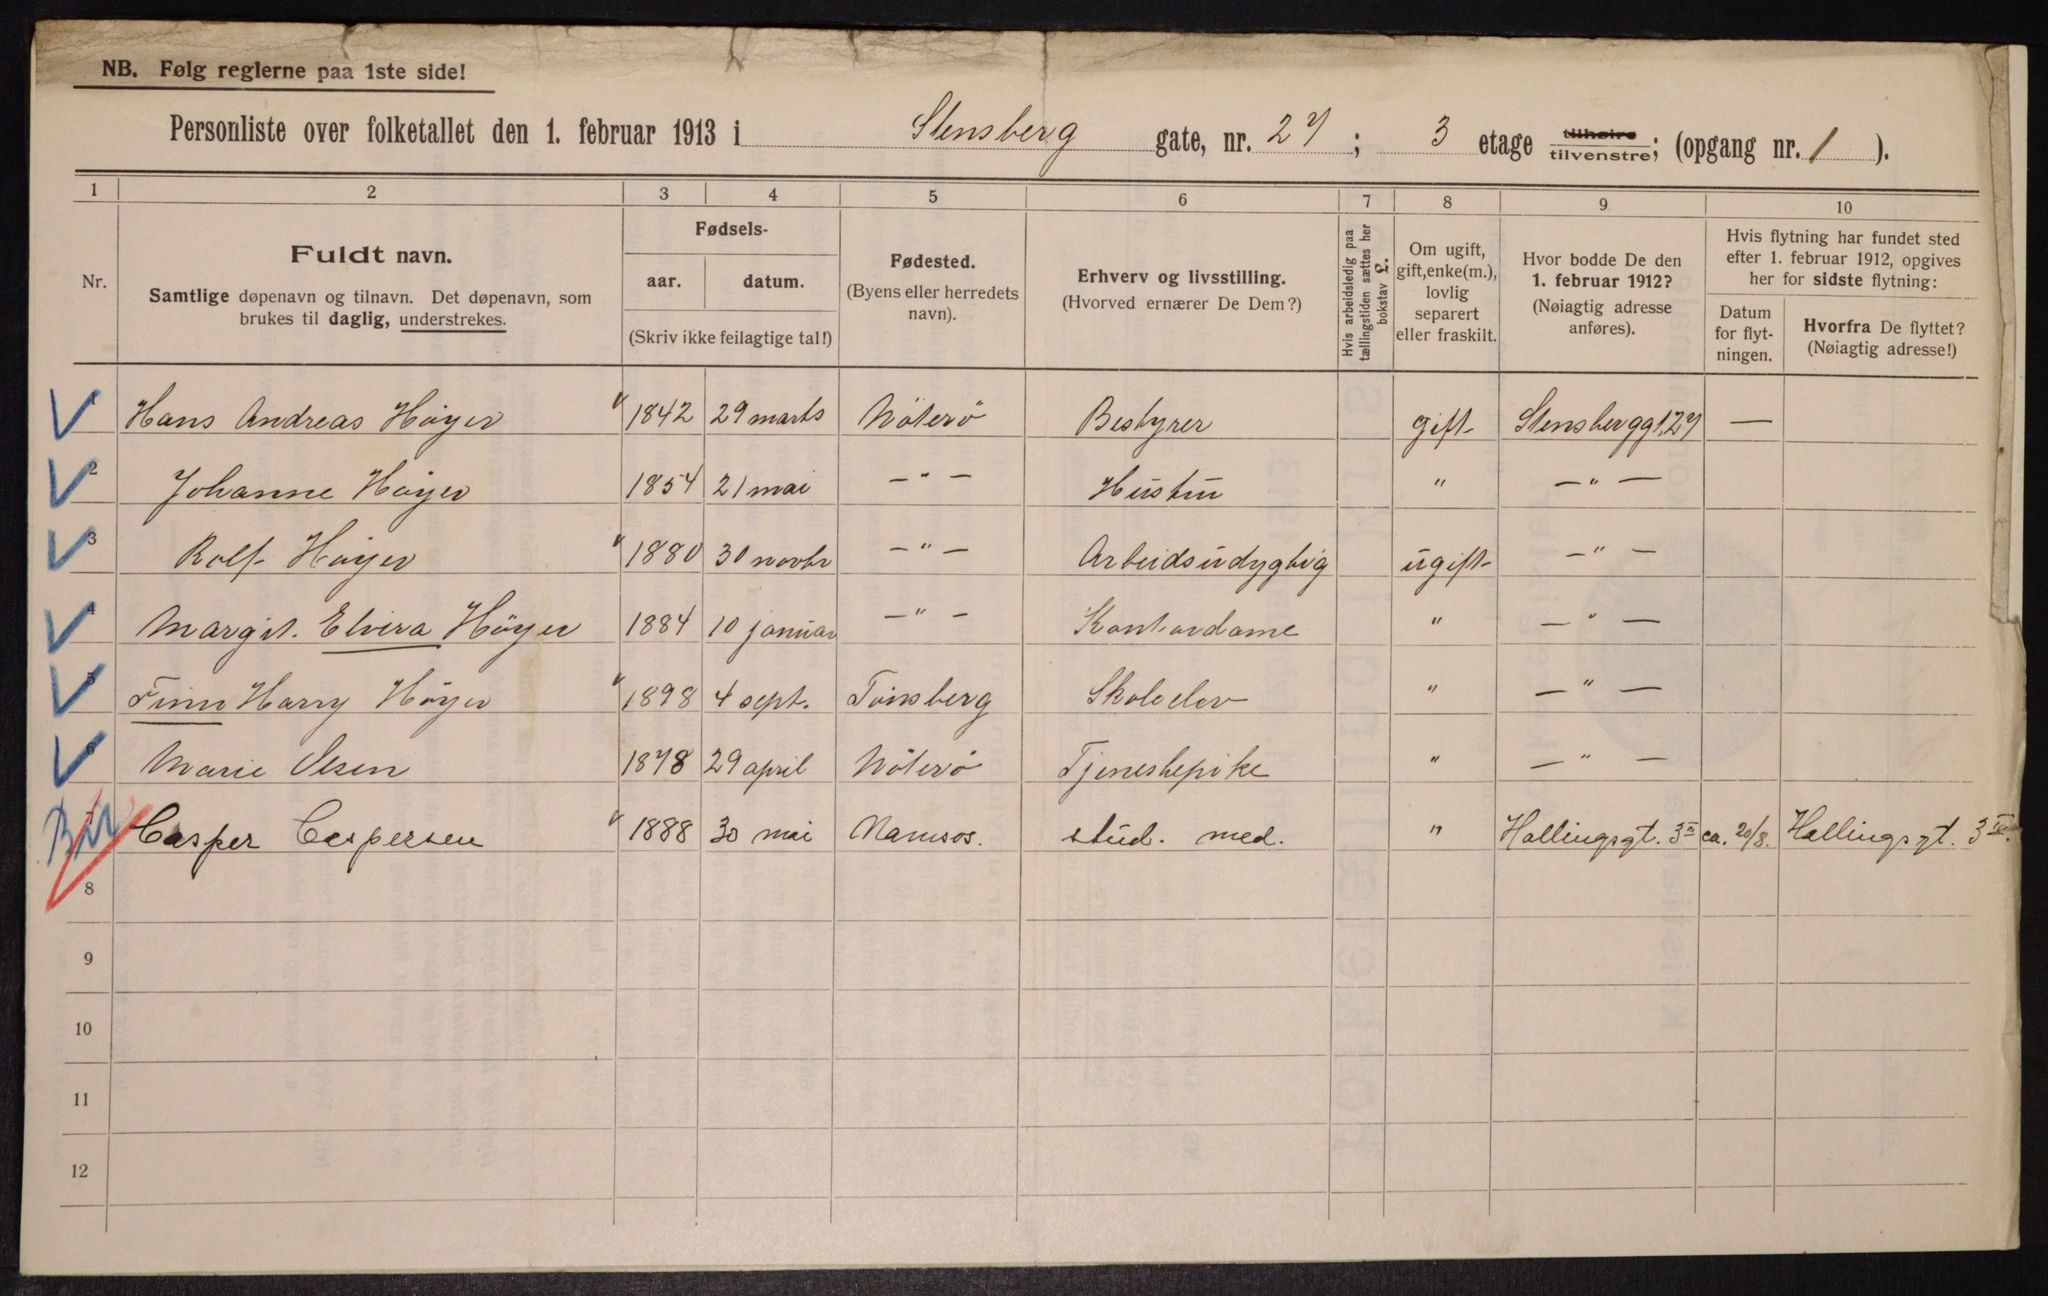 NB. Følg reglerne paa 1ste side!
Personliste over folketallet den 1. februar 1913 i Stensberg gate, nr. 27; 3 etage tilhøire tilvenstre; (opgang nr. 1).
1 2 3 4 5 6 7 8 9 10
Nr.
Fuldt navn.
Samtlige døpenavn og tilnavn. Det døpenavn, som
brukes til daglig, understrekes.
Fødsels-
aar. datum.
(Skriv ikke feilagtige tal!)
Fødested.
(Byens eller herredets
navn).
Erhverv og livsstilling.
(Hvorved ernærer De Dem?)
Hvis arbeidsledig paa
tællingstiden sættes her
bokstav £.
Om ugift,
gift, enke(m.),
lovlig
separert
eller fraskilt.
Hvor bodde De den
1. februar 1912?
(Nøiagtig adresse
anføres).
Hvis flytning har fundet sted
efter 1. februar 1912, opgives
her for sidste flytning:
Datum
for flyt-
ningen.
Hvorfra De flyttet?
(Nøiagtig adresse!)
1 Hans Andreas Høyer 1842 29 marts Nöterö Bestyrer gift Stensberggt. 27 —
2 Johanne Höyer 1854 21 mai — " — Hustru " — " —
3 Rolf Höyer 1880 30 novbr — " — Arbeidsudygtig ugift — " —
4 Margit. Elvira Höyer 1884 10 januar — " — Kontordame " — " —
5 Finn Harry Höyer 1898 4 sept. Tönsberg Skoleelev " — " —
6 Marie Olsen 1878 29 april Nöterö Tjenestepike " — " —
Casper Caspersen 1888 30 mai Namsos. stud. med. " Hallingsgt. 3 III ca. 20/8. Hallingsgt. 3 III.
8
9
10
11
12